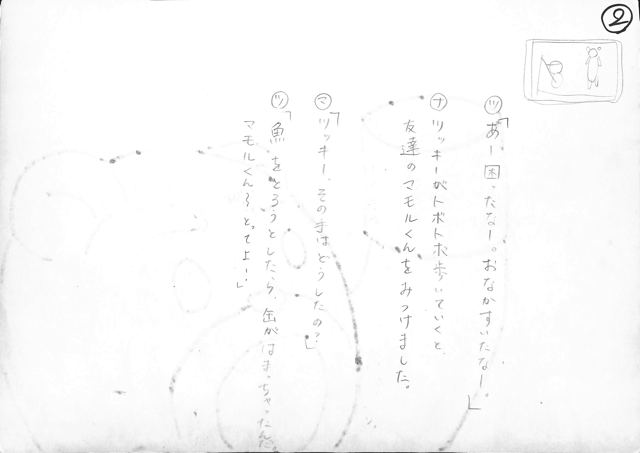 ②
ツ「あー。困ったなー。おなかすいたなー。」
ナ ツッキーがトボトボ歩いていくと、
友達のマモルくんをみつけました。
マ「ツッキー、その手はどうしたの?」
ツ「魚をとろうとしたら、缶がはまっちゃったんだ
マモルくん〜とってよ!」